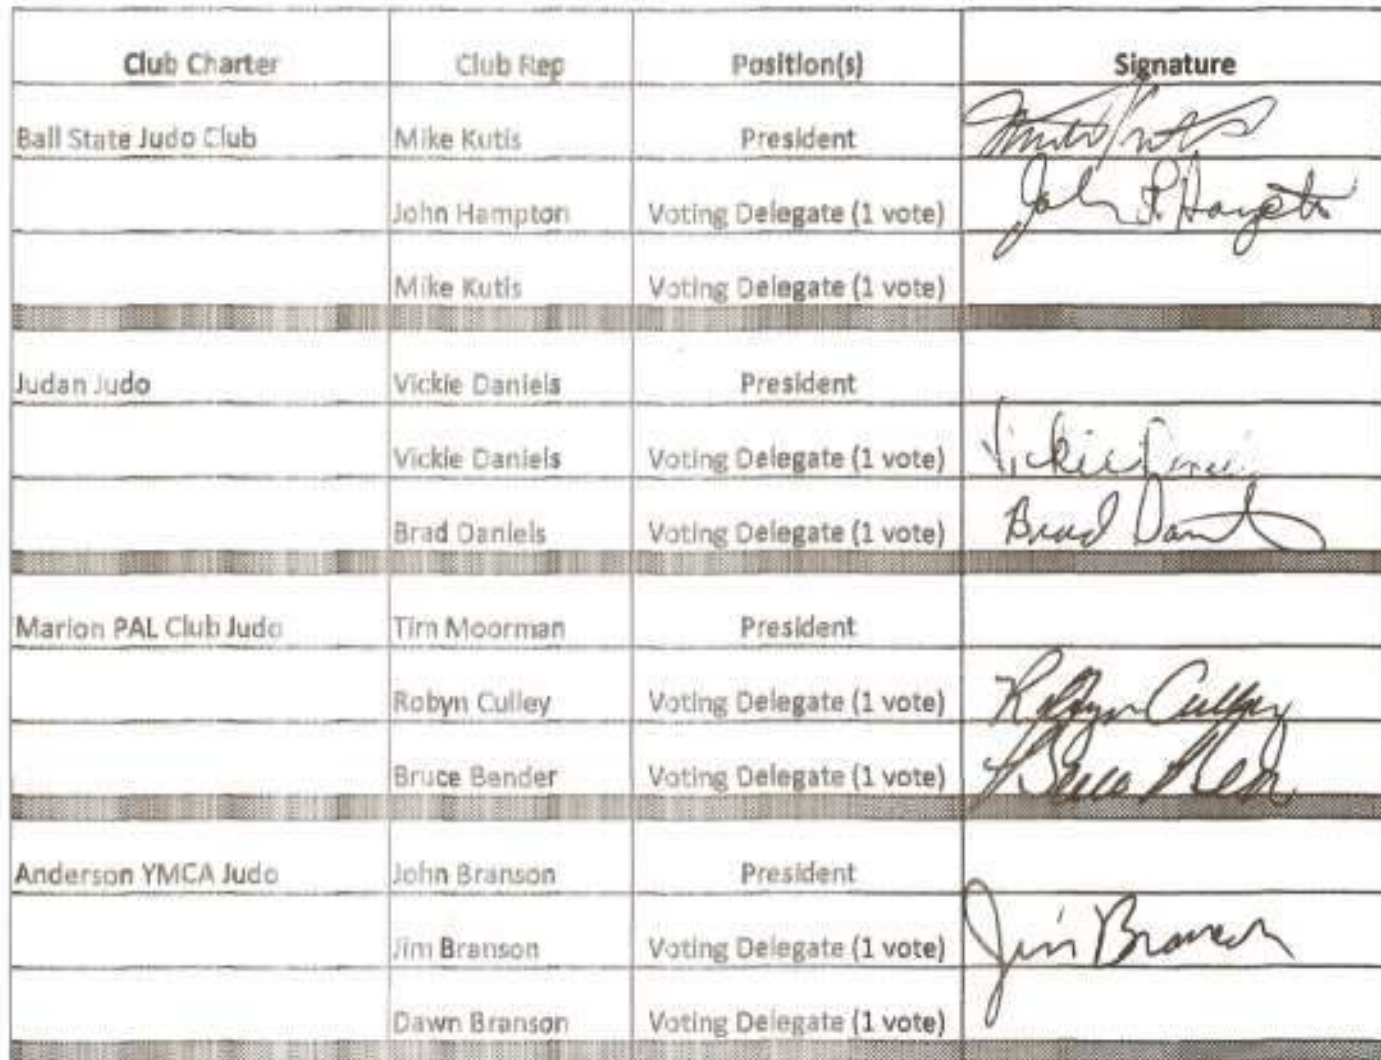 Club Charter Club Rep Position(s) Signature
Ball State Judo Club Mike Kutis President
John Hampton Voting Delegate (1 vote) John P. Hampton
Mike Kutis Voting Delegate (1 vote)
Judan Judo Vickie Daniels President
Vickie Daniels Voting Delegate (1 vote) Vickie
Brad Daniels Voting Delegate (1 vote) Brad
Marion PAL Club Judo Tim Moorman President
Robyn Culley Voting Delegate (1 vote) Robyn Culley
Bruce Bender Voting Delegate (1 vote) Bruce
Anderson YMCA Judo John Branson President
Jim Branson Voting Delegate (1 vote) Jim Branson
Dawn Branson Voting Delegate (1 vote)